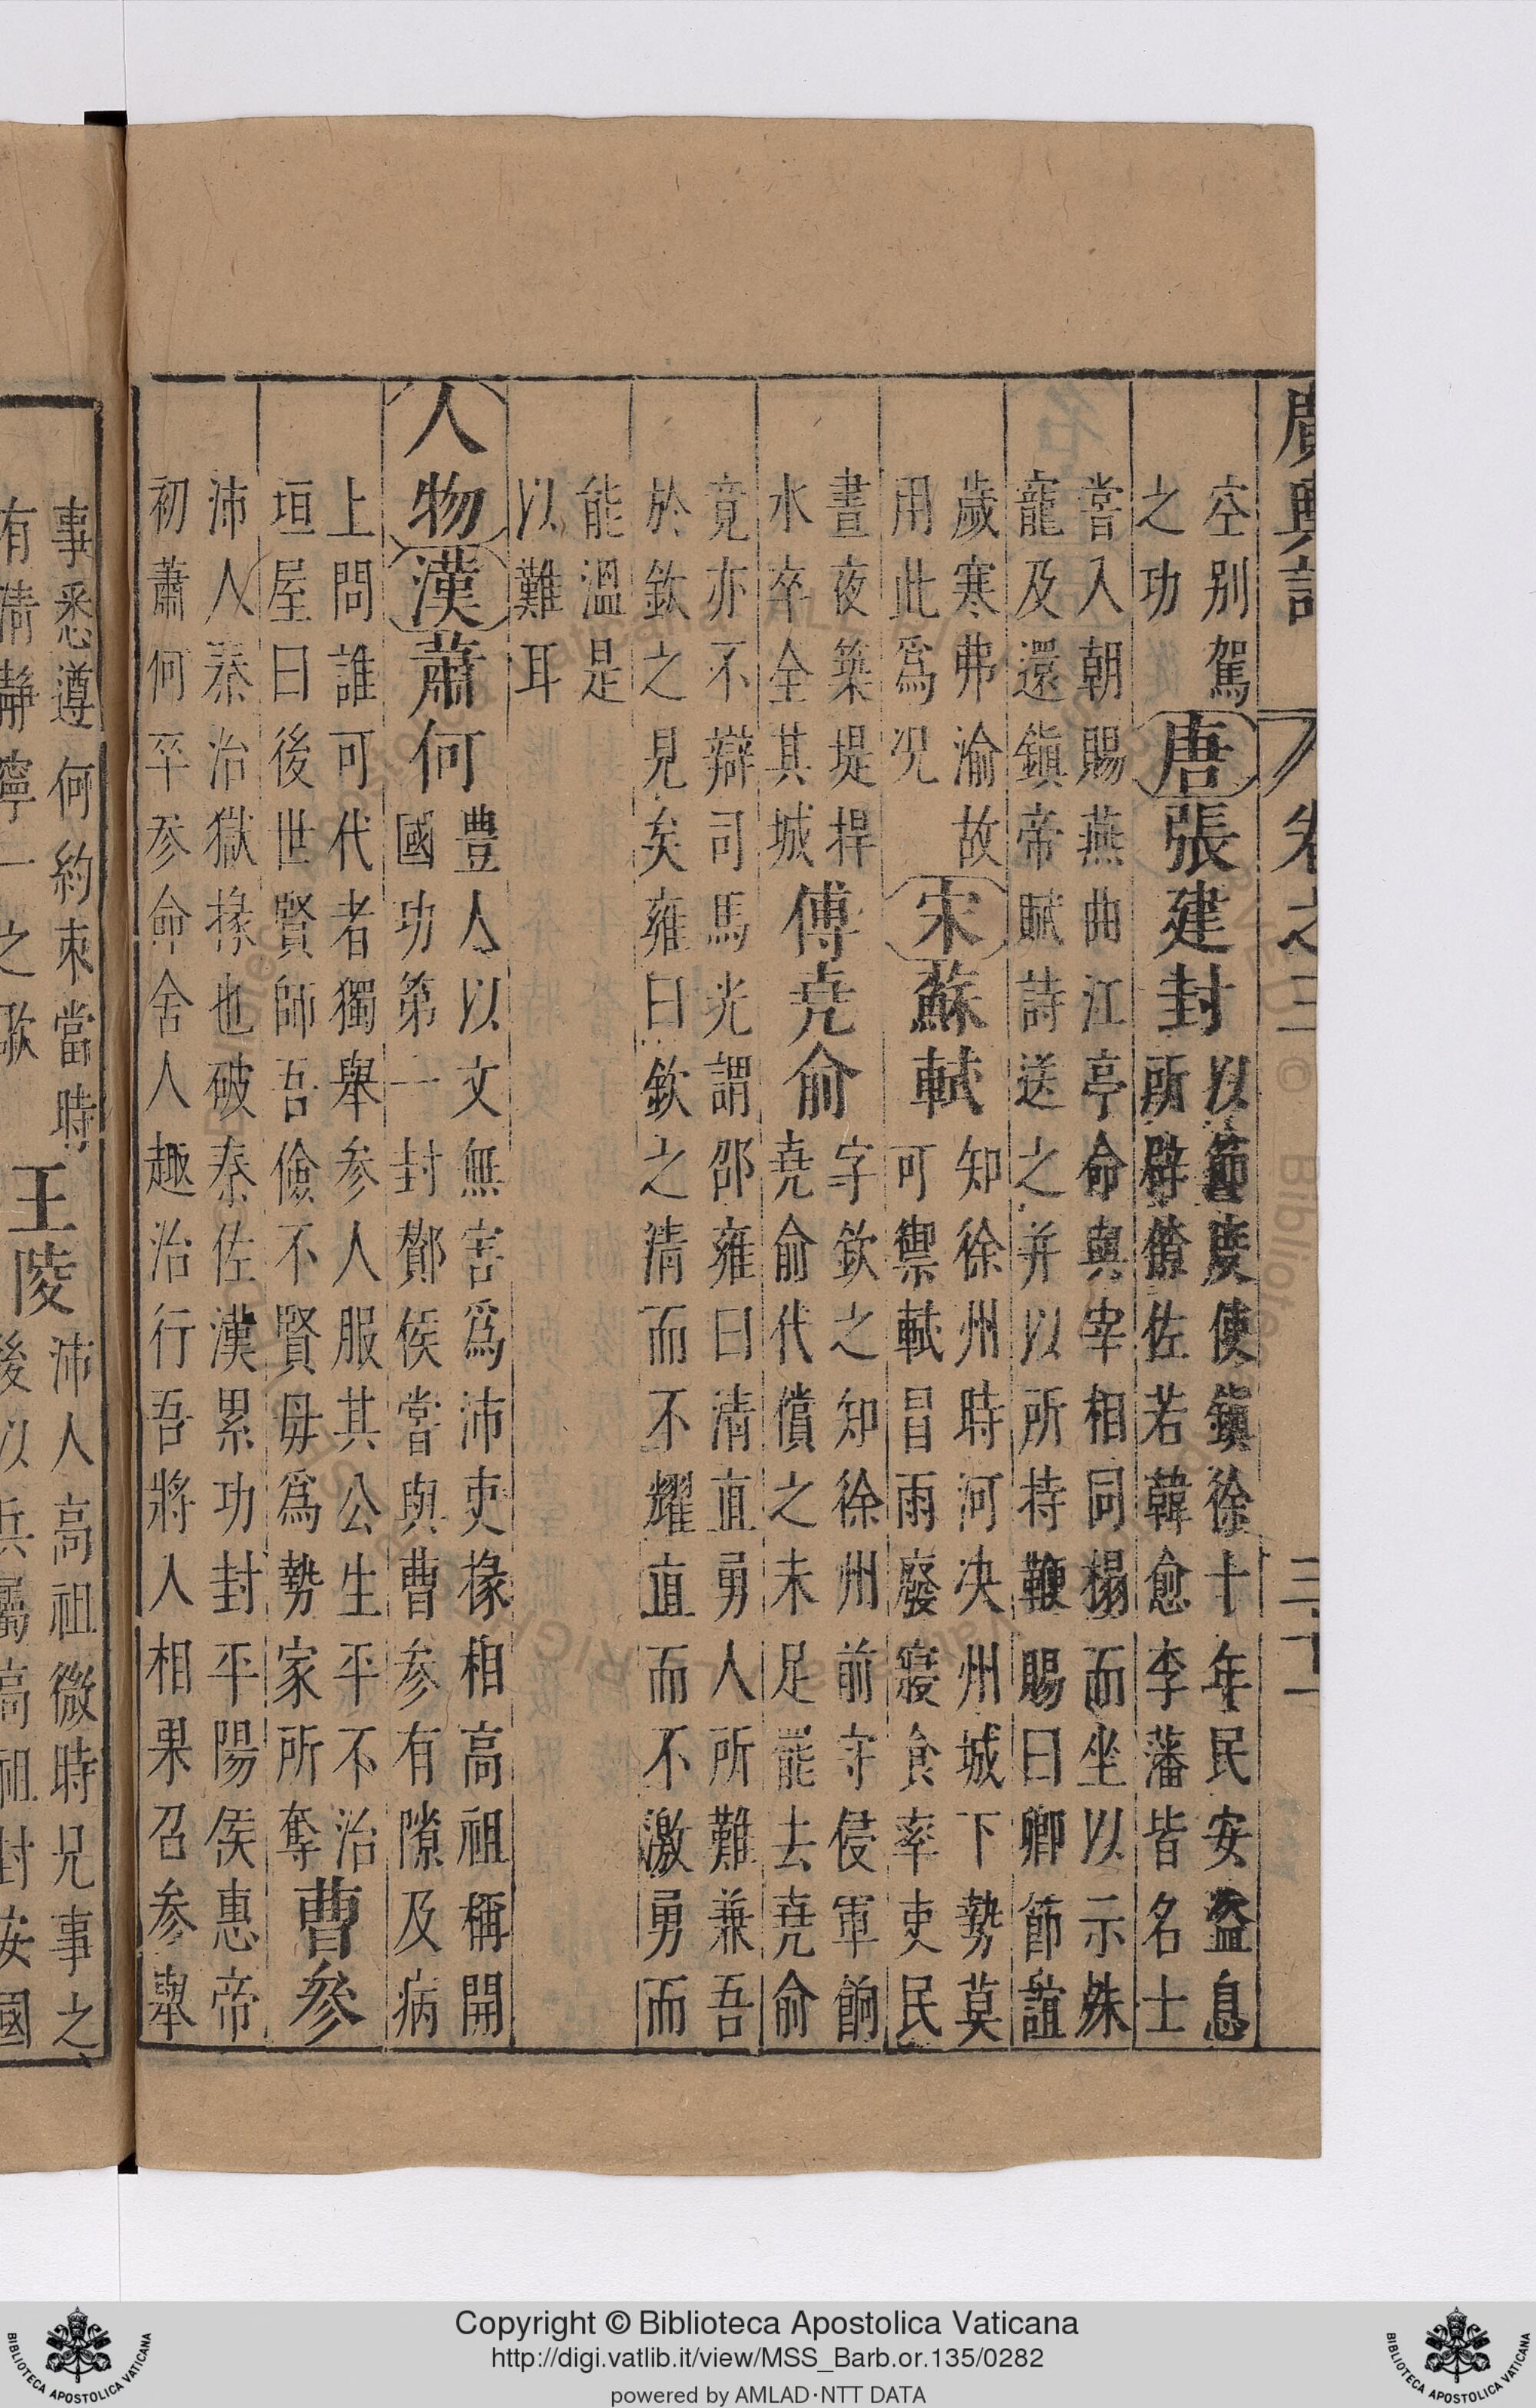 廣輿記 卷之三 三十一
空别駕
之功
唐張建封
以節度使鎮徐十年民安盗息
所辟僚佐若韓愈李藩皆名士
嘗入朝賜燕曲江亭命與宰相同榻而坐以示殊
寵及還鎮帝賦詩送之并以所持鞭賜曰卿節誼
歲寒弗渝故
用此爲况
宋蘇軾
知徐州時河决州城下勢莫
可禦軾冒雨廢寢食率吏民
晝夜築堤捍
水卒全其城
傅堯俞
字欽之知徐州前守侵軍餉
堯俞代償之未足罷去堯俞
竟亦不辯司馬光謂邵雍曰清直勇人所難兼吾
於欽之見矣雍曰欽之清而不耀直而不激勇而
能溫是
以難耳
人物漢蕭何
豊人以文無害爲沛吏掾相高祖稱開
國功第一封酇侯嘗與曹参有隙及病
上問誰可代者獨舉参人服其公生平不治
垣屋曰後世賢師吾儉不賢毋爲勢家所奪
曹參
沛人秦治獄掾也破秦佐漢累功封平陽侯惠帝
初蕭何卒参命舍人趣治行吾將人相果召参舉
事悉遵何約束當時
有清靜寧一之歌
王陵
沛人高祖微時兄事之
後以兵屬高祖封安國
Copyright © Biblioteca Apostolica Vaticana
http://digi.vatlib.it/view/MSS_Barb.or.135/0282
powered by AMLAD·NTT DATA
BIBLIOTECA APOSTOLICA VATICANA
BIBLIOTECA APOSTOLICA VATICANA